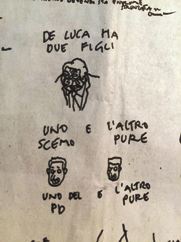 DE LUCA HA
DUE FIGLI
UNO E L'ALTRO
SCEMO PURE
UNO DEL E L'ALTRO
PD PURE